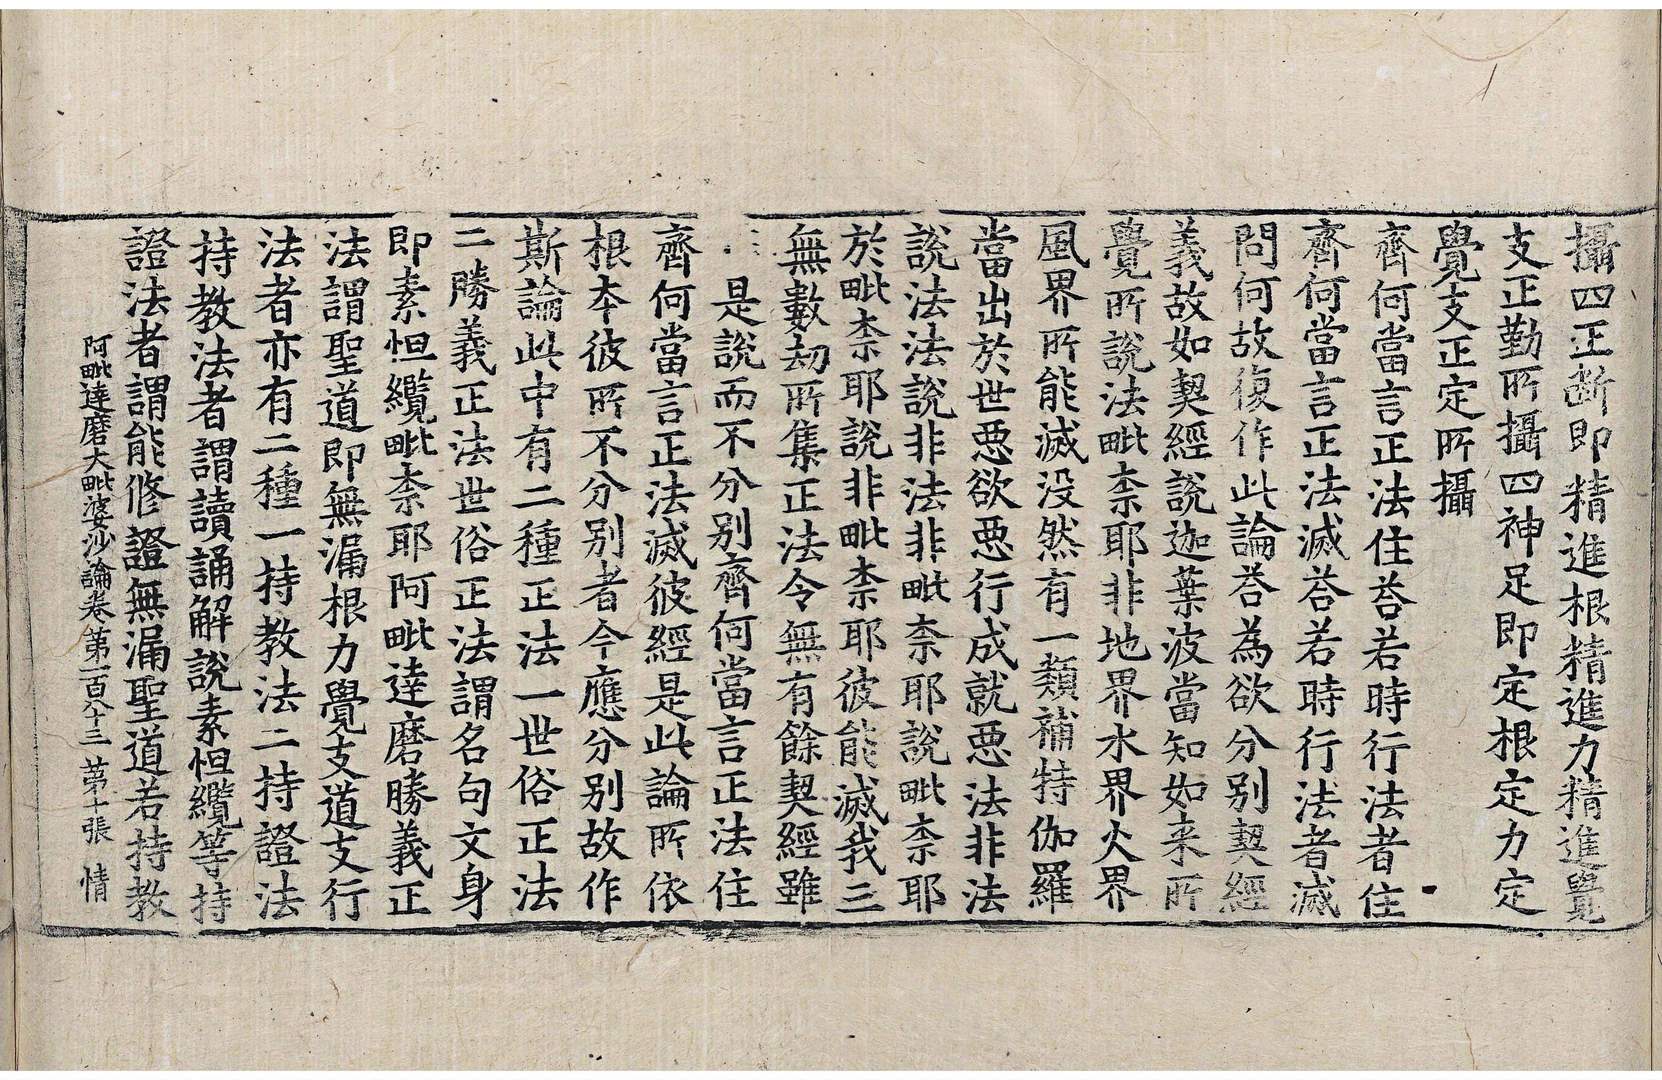 攝四正斷即精進根精進力精進覺
支正勤所攝四神足即定根定力定
覺支正定所攝
齊何當言正法住荅若時行法者住
齊何當言正法滅荅若時行法者滅
問何故復作此論荅為欲分別契經
義故如契經說迦葉波當知如来所
覺所說法毗柰耶非地界水界火界
風界所能滅没然有一類補特伽羅
當出於世惡欲惡行成就惡法非法
說法法說非法非毗柰耶說毗柰耶
於毗柰耶說非毗柰耶彼能滅我三
無數劫所集正法令無有餘契經雖
是說而不分別齊何當言正法住
齊何當言正法滅彼經是此論所依
根本彼所不分別者今應分別故作
斯論此中有二種正法一世俗正法
二勝義正法世俗正法謂名句文身
即素怛纜毗柰耶阿毗達磨勝義正
法謂聖道即無漏根力覺支道支行
法者亦有二種一持教法二持證法
持教法者謂讀誦解說素怛纜等持
證法者謂能修證無漏聖道若持教
阿毗達磨大毗婆沙論卷第一百八十三 苐十張 情